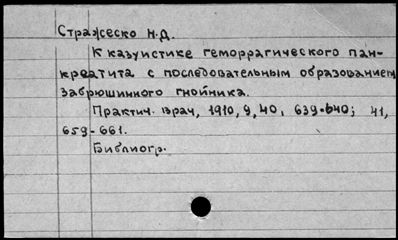 Стражеско Н.Д.
К казуистике геморрагического пан-
креатита с последовательным образованием
забрюшинного гнойника.
Практич. врач, 1910, 9, 40, 639-640; 41,
659-661.
Библиогр.